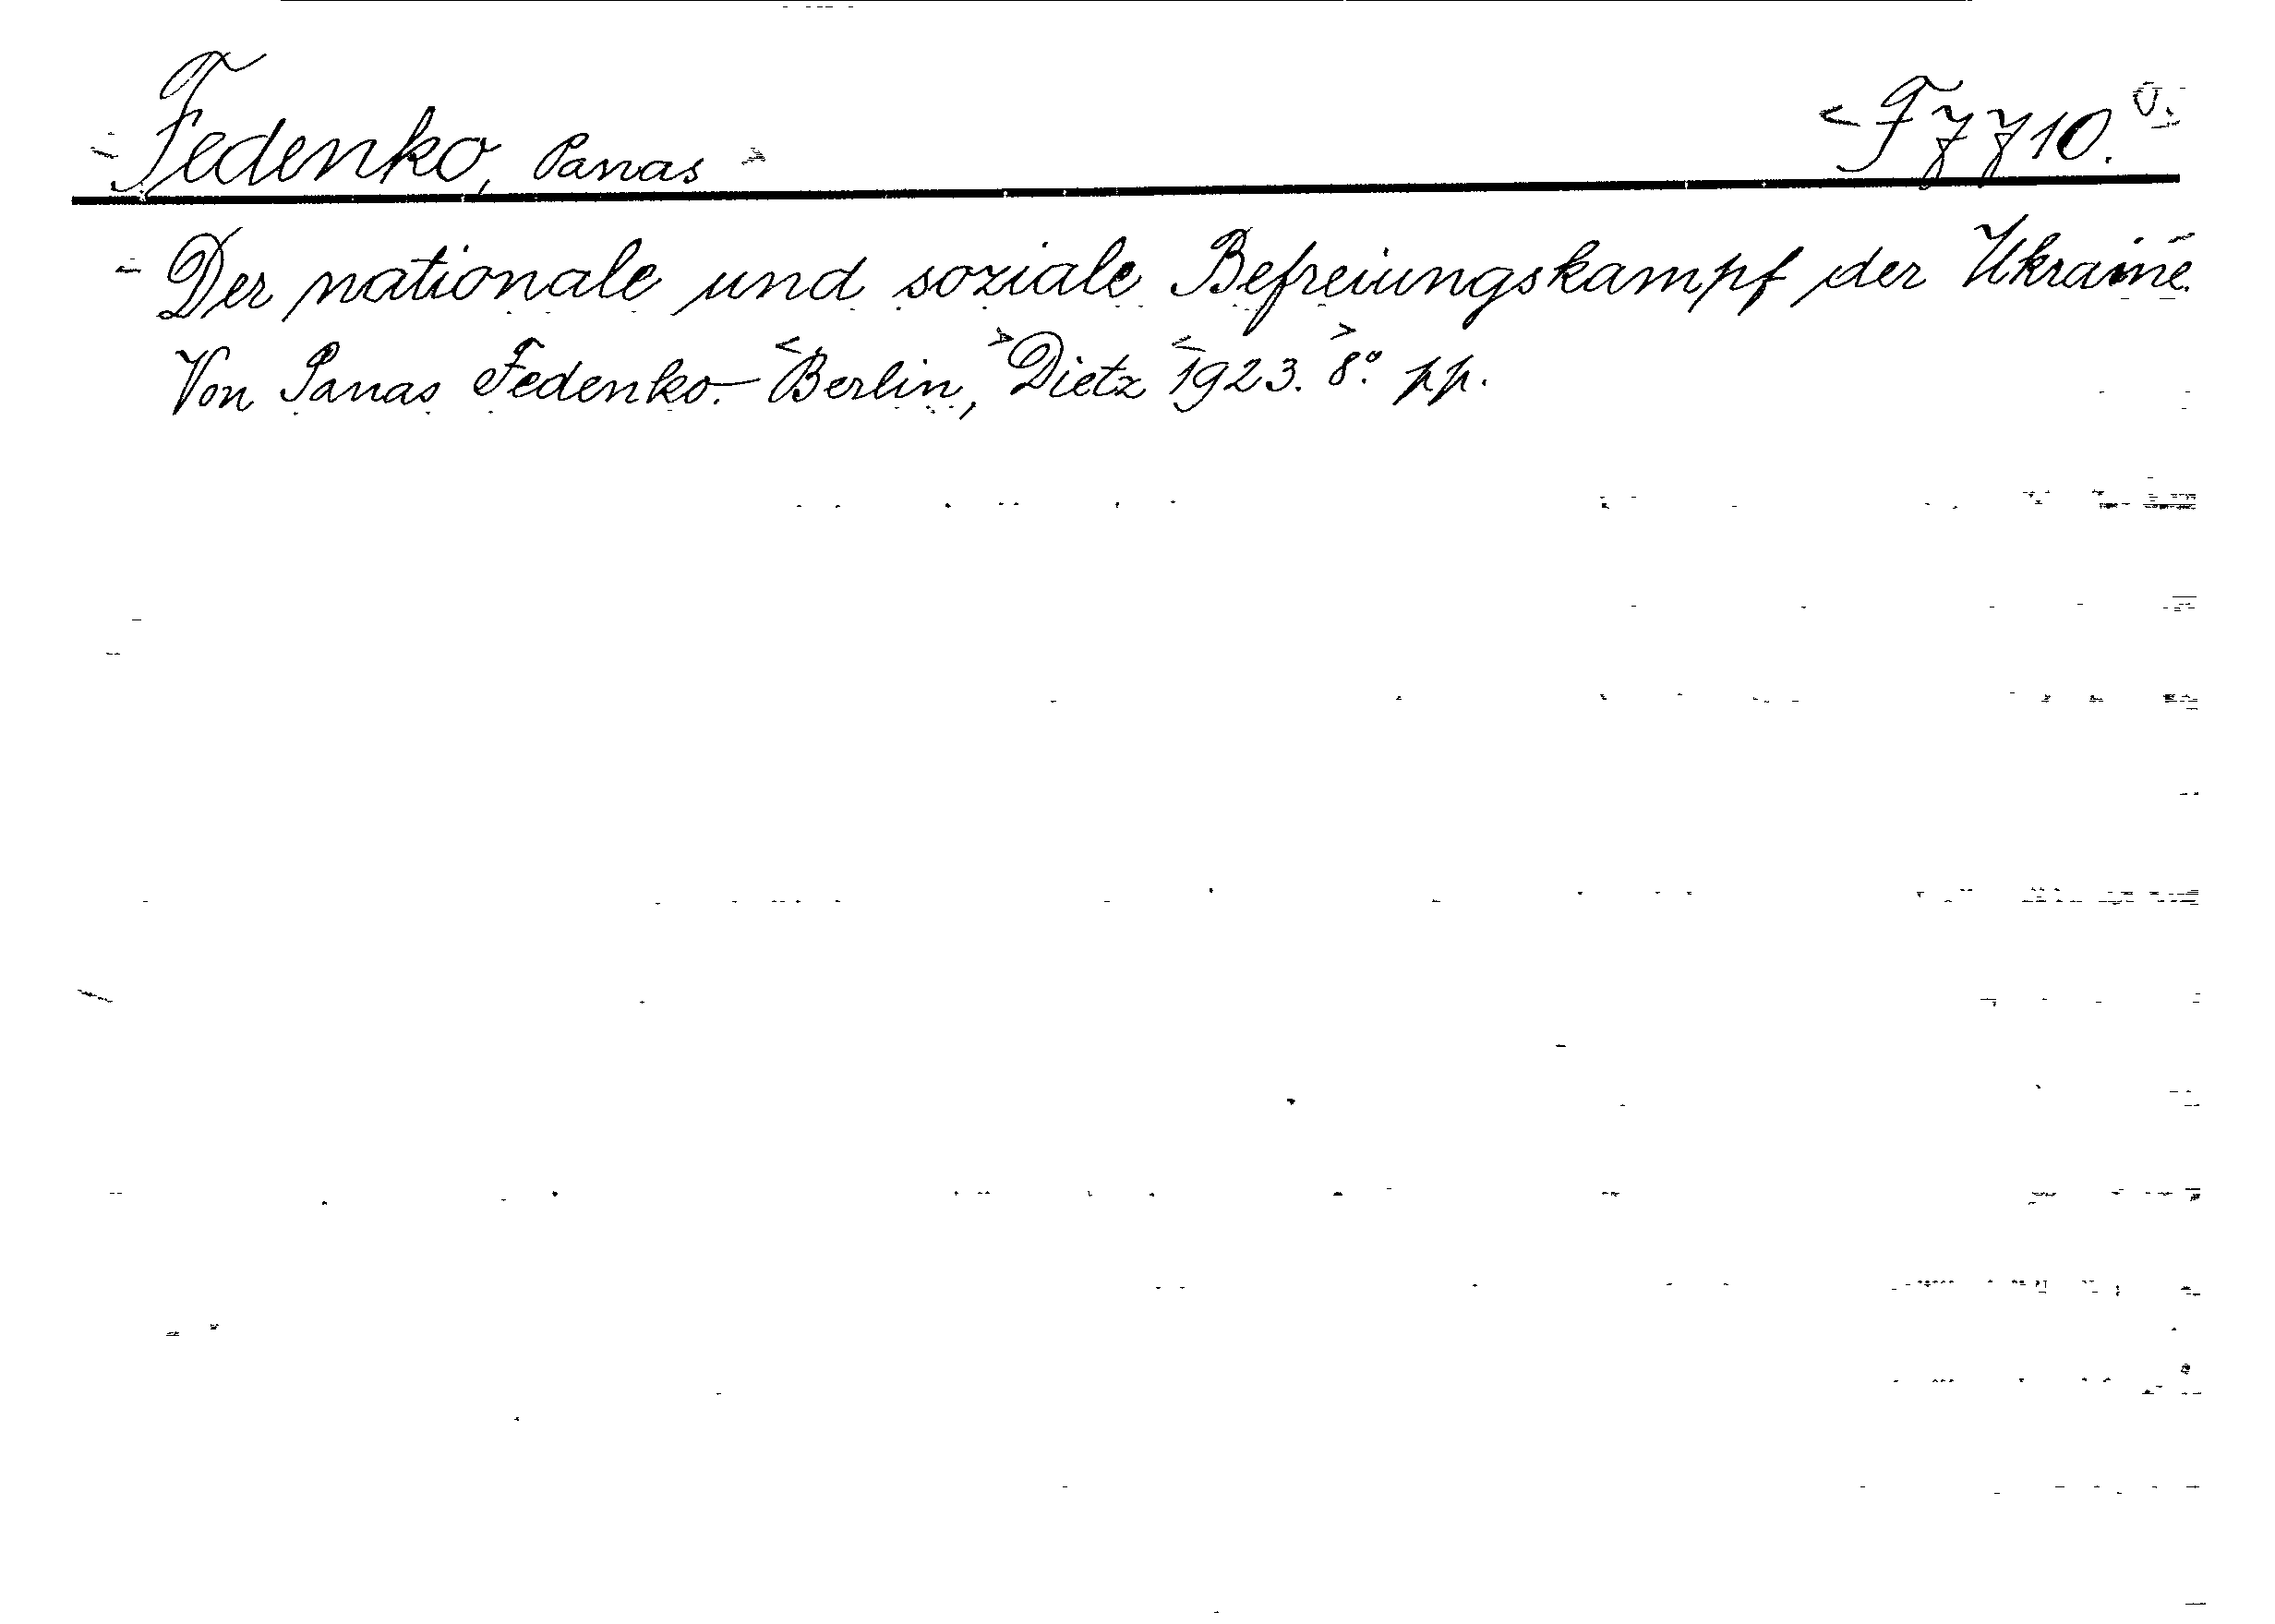 Fedenko, Panas > < F 7710.
- Der nationale und soziale Befreiungskampf der Ukraine.
Von Panas Fedenko. – < Berlin, > Dietz < 1923. > 8°. pp.